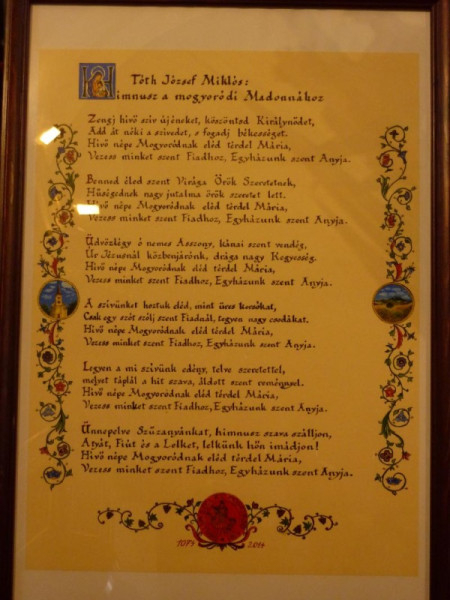 Tóth József Miklós:
Himnusz a mogyoródi Madonnához
Zengj hívő szív újéneket, köszöntsd Királynődet,
Add át néki a szívedet, s fogadj békességet.
Hívő népe Mogyoródnak eléd térdel Mária,
Vezess minket szent Fiadhoz, Egyházunk szent Anyja.
Benned éled szent Virága Örök Szeretetnek,
Hűségednek nagy jutalma örök szeretet lett.
Hívő népe Mogyoródnak eléd térdel Mária,
Vezess minket szent Fiadhoz, Egyházunk szent Anyja.
Üdvözlégy ó nemes Asszony, kánai szent vendég,
Úr Jézusnál közbenjárónk, drága nagy Kegyesség.
Hívő népe Mogyoródnak eléd térdel Mária,
Vezess minket szent Fiadhoz, Egyházunk szent Anyja.
A szívünket hoztuk eléd, mint üres korsókat,
Csak egy szót szólj szent Fiadnál, tegyen nagy csodákat.
Hívő népe Mogyoródnak eléd térdel Mária,
Vezess minket szent Fiadhoz, Egyházunk szent Anyja.
Legyen a mi szívünk edény, telve szeretettel,
melyet táplál a hit szava, áldott szent reménnyel.
Hívő népe Mogyoródnak eléd térdel Mária,
Vezess minket szent Fiadhoz, Egyházunk szent Anyja.
Ünnepelve Szűzanyánkat, himnusz szava szálljon,
Atyát, Fiút és a Lelket, lelkünk hőn imádjon!
Hívő népe Mogyoródnak eléd térdel Mária,
Vezess minket szent Fiadhoz, Egyházunk szent Anyja.
2014